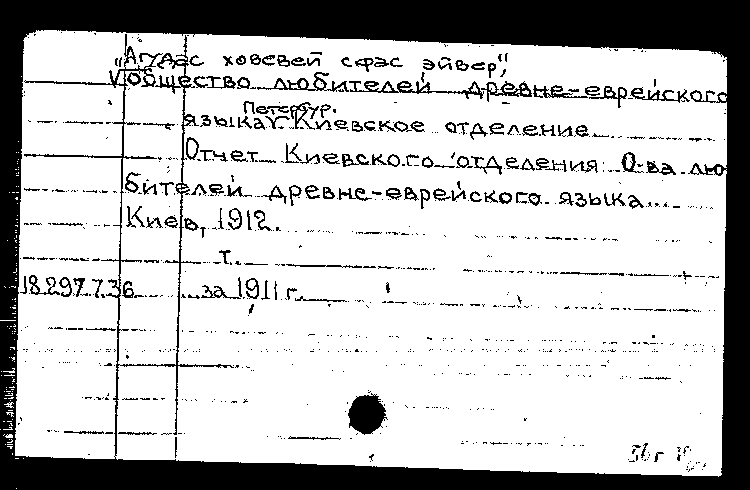 „Агудас ховевей сфас эйвер",
Общество любителей древне-еврейского
Петербур.
языка. Киевское отделение.
Отчет Киевского отделения О-ва лю
бителей древне-еврейского языка...
Киев, 1912.
т.
18.297.7.36 ...за 1911 г.